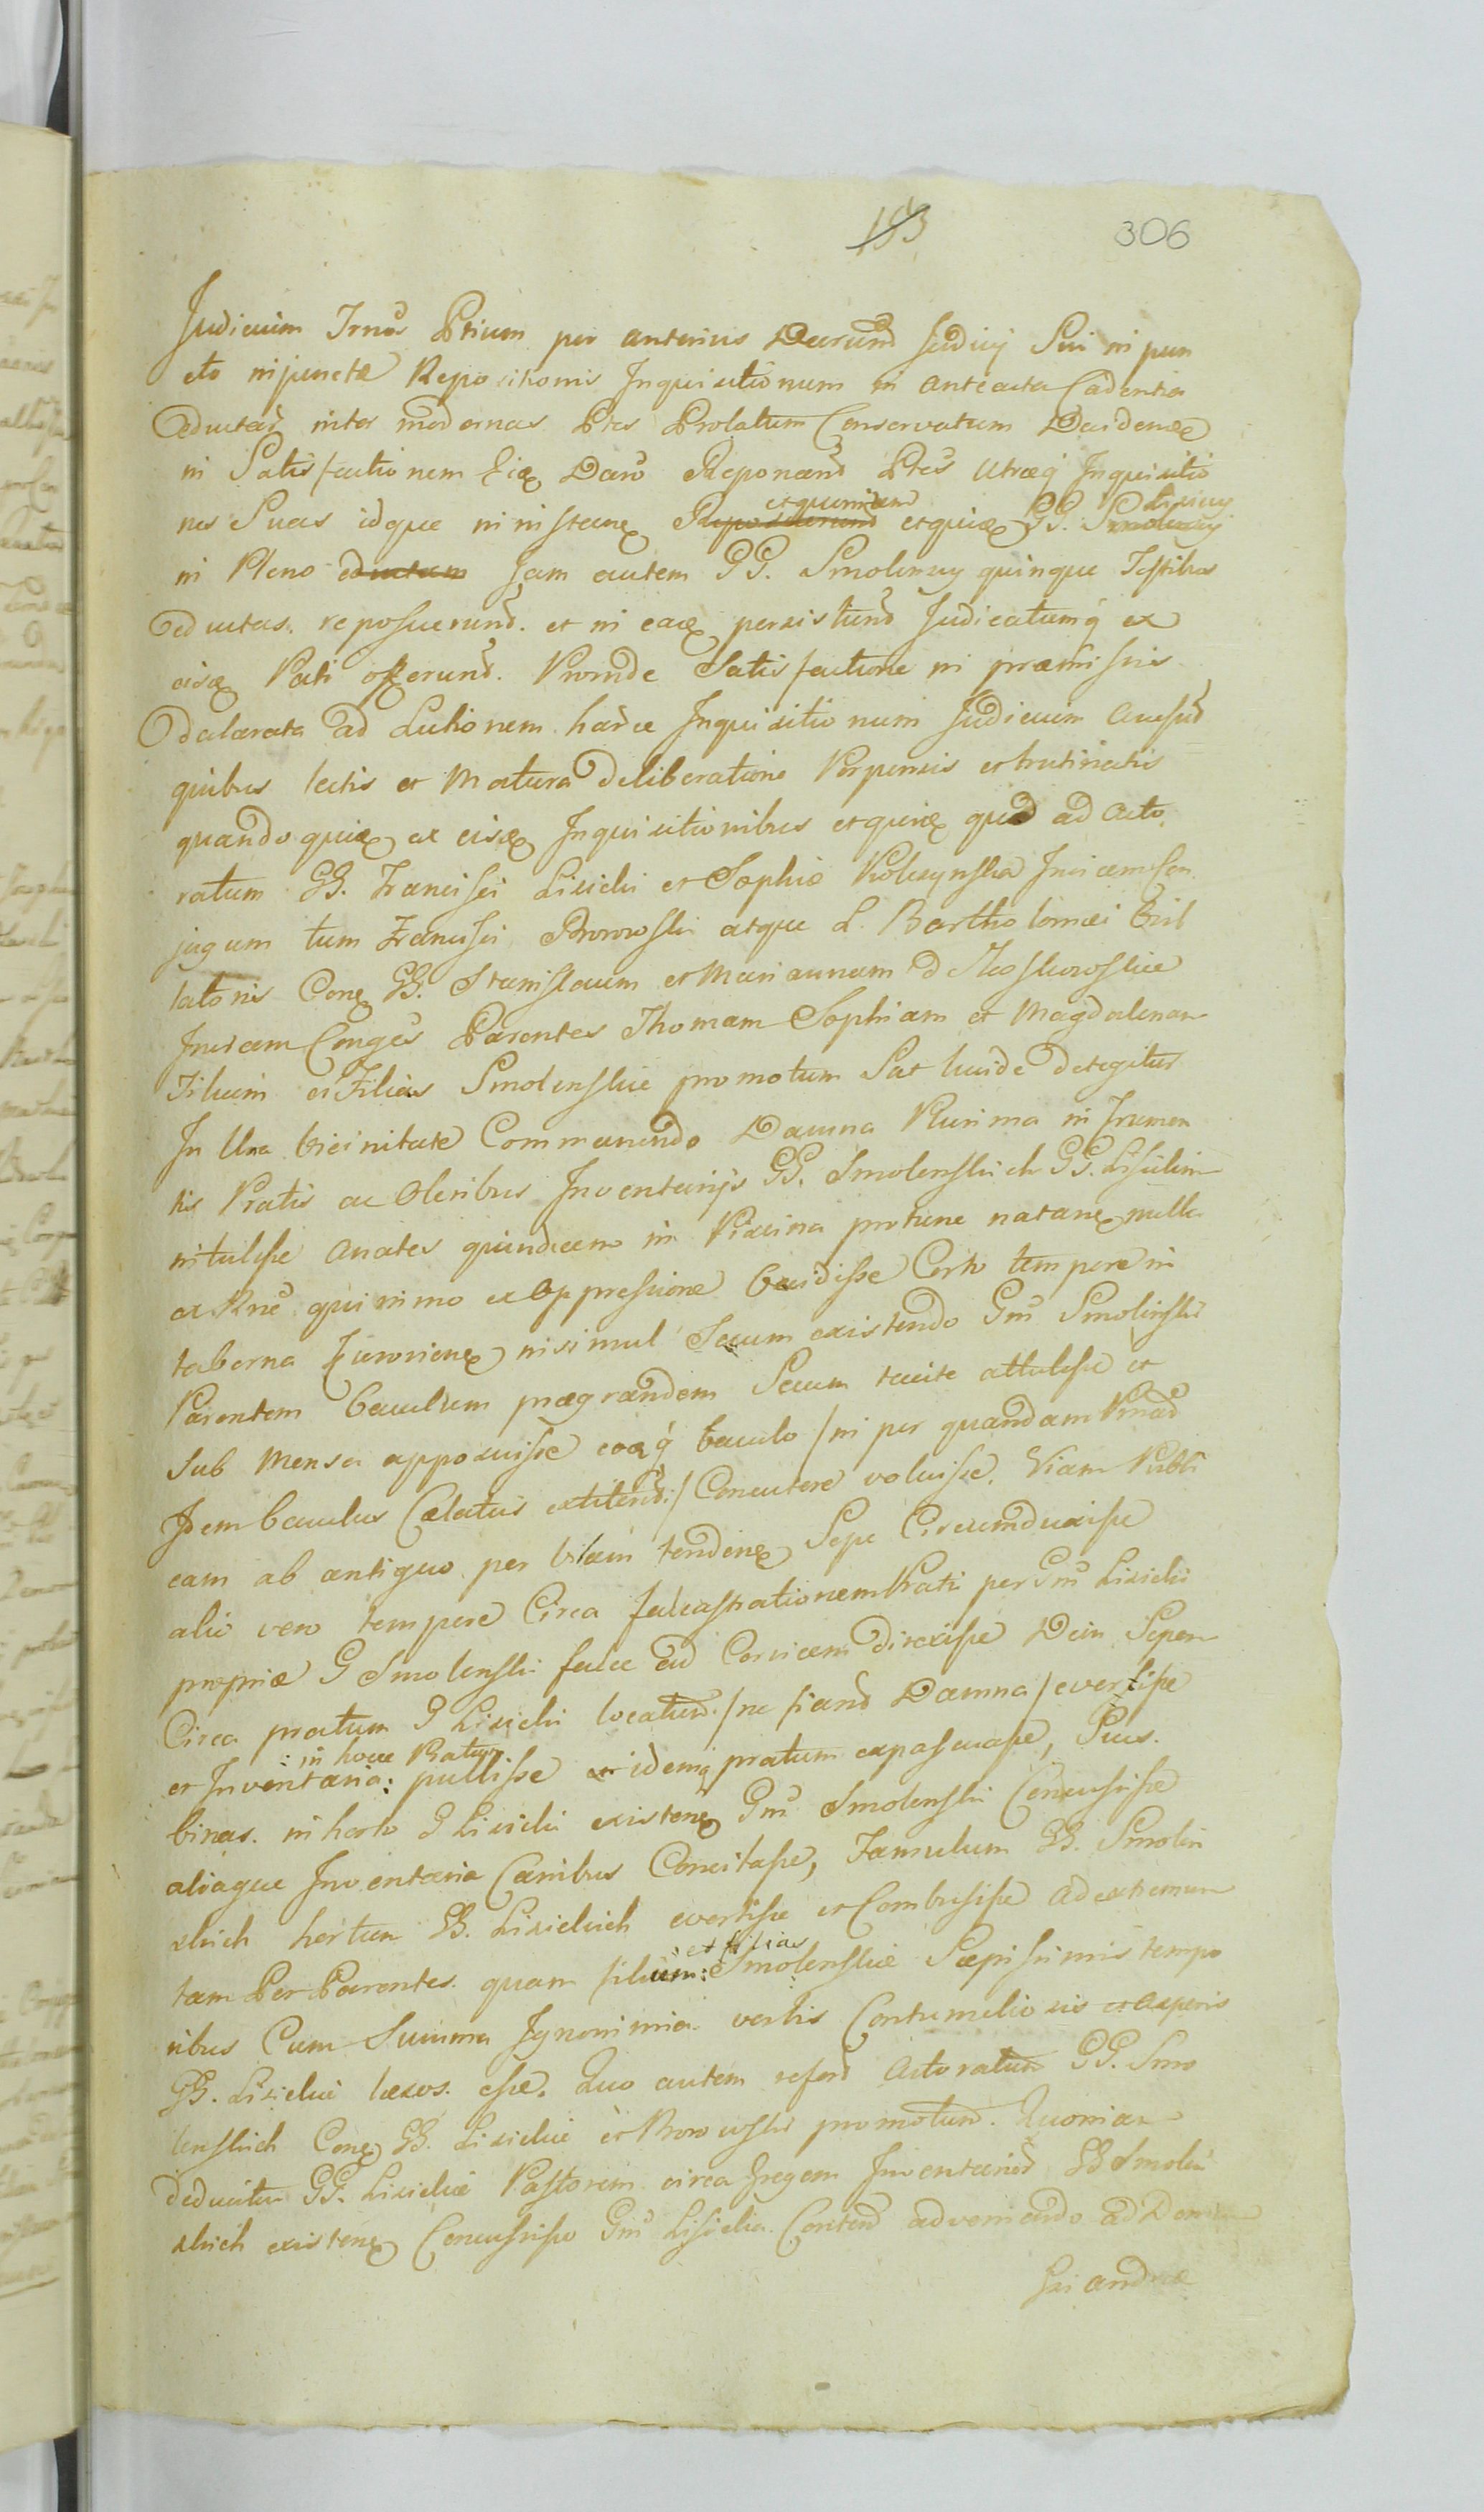 183 306
Judicium Trnos Ptium per anterius Decrund Judicy Sui in pun
cto injunctæ Repositionis Inquisitionum in anteacta Cadentia
Eductar inter modernas Ptes Prolatum Conservatum
in Satisfactionem Decro Reponend Ptes utræq Inquisitio
nes Suas idque in instanx Reposuerund et quoniam et quia GG. Lisiccy
in Pleno eductam Jam autem GG. Smolenscy quinque Testibus
eductas. reposuerund. et in eaq persistund Judicatumq ex
eisq Pati offerund. Proinde Satisfactione in præmissis
declarata ad Lectionem harce Inquisitionum Judicium
quibus lectis et Matura deliberatione Perpensis et trutinatis
quandoquid ex eisq Inquisitionibus etquid quod ad Acto
ratum GG. Francisci Lisicki et Sophiæ Kolczynska Invicem Con
jugum tum Francisci Borowski atque L. Bartholomæi
latonis Conq GG. Stanislaum et Mariannam de
Invicem Conges Parentes Thomam Sophiam et Magdalenam
Filium et Filias Smolenskie promotum Sat lucide detegitur
In Una Vicinitate Commanendo Damna Plurima in Frumen
tis Pratis ac Oleribus Inventarijs GG. Smolenskich GG. Lisickim
intulisse Anates quindecem in Piscina protunc natanq nulla
ex Rne quinimo ex Oppressione Occidisse Certo tempore in
taberna insimul Secum existendo Gm Smolenski
Parentem baculum prægrandem Secum tacite attulisse et
sub Mensa apposuisse eoq baculo /ni per quandam
Idem baculus Celatus extitend:/ Concutere voluisse. Viam Publi
cam ab antiquo per Villam tendenq Sepe Circumduxisse
alio vero tempore Circa falcastrationem Prati per Gm Lisicki
propriæ G Smolenski falce ad Cervicem direxisse Dein Sepem
Circa pratum G Lisicki locatum /ne fiand Damna/ evertisse
et Inventaria : in hocce Pratum : pullisse et idemq pratum expascuasse, Sues.
binas. in horto G Lisicki existenq Gm Smolenski Concussisse
aliaque Inventaria Canibus Concitasse, Famulum GG. Smolen
skich hortum GG. Lisickich evertisse et Combusisse ad extremum
tam Per Parentes quam filium : et filias : Smolenskie Sæpissimis tempo
ribus Cum Summa Ignonimia verbis Contumeliosis et asperis
GG. Lisickie læsos. esse. Quo autem refert Actoratum GG. Smo
lenskich Conq GG. Lisickie et Borowski promotum. Quoniam
deducitur GG. Lisickie Pastorem circa Gregem Inventariod GG Smolen
skich existenq Concussisse Gm Lisicki Contend adveniendo ad